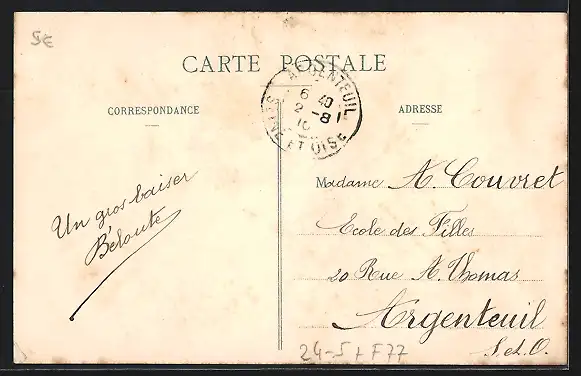 5€
CARTE POSTALE
CORRESPONDANCE
ADRESSE
ARGENTEUIL
6 40
2 - 8
10
SEINE ET OISE
Un gros baiser
Béloute
Madame A. Couvret
Ecole des Filles
20 Rue A. Thomas
Argenteuil
S. et. O.
24-5 + F77